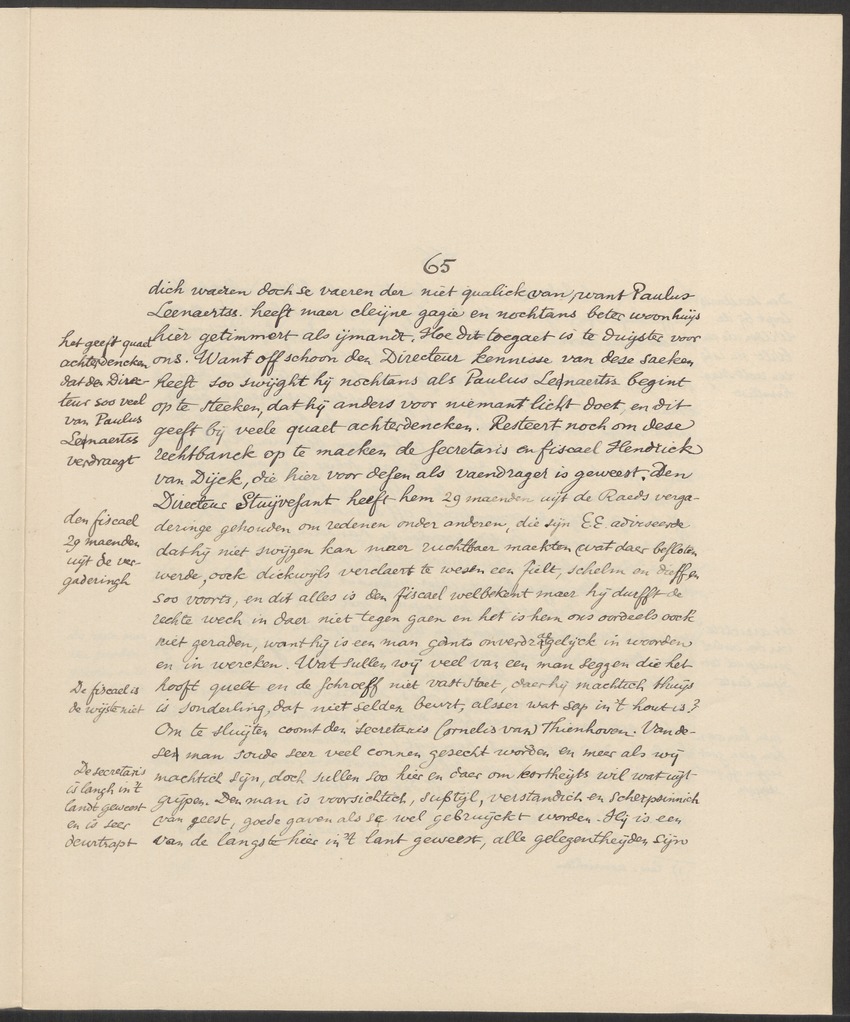 65
dich waren doch se vaeren der niet qualick van, want Paulus
Leenaertss. heeft maer cleijne gagie en nochtans beter woonhuijs
hier getimmert als ijmandt. Hoe dit toegaet is te duijster voor
ons. Want off schoon den Directeur kennisse van dese saeken
heeft soo swijght hij nochtans als Paulus Leenaertss begint
op te steecken, dat hij anders voor niemant licht doet, en dit
geeft bij veele quaet achterdencken. Resteert noch om dese
rechtbanck op te maeken de secretaris en fiscael Hendrick
van Dijck, die hier voor desen als vaendrager is geweest. Den
Directeur Stuijvesant heeft hem 29 maenden uijt de Raeds verga-
deringe gehouden om redenen onder anderen, die sijn E.E. adviseerde
dat hij niet swijgen kan maer ruchtbaer maekten wat daer besloten
werde, oock dickwijls verclaert te wesen een fielt, schelm en dieff en
soo voorts, en dit alles is den fiscael welbekent maer hij durfft de
rechte wech in daer niet tegen gaen en het is hem ons oordeels oock
niet geraden, want hij is een man gants onverdragelijck in woorden
en in wercken. Wat sullen wij veel van een man seggen die het
hooft quelt en de schroeff niet vast staet, daer hij machtich thuijs
is sonderling, dat niet selden beurt, alsser wat sop in 't hout is?
Om te sluijten coomt den secretaris Cornelis van Thienhoven. Van de-
sen man soude seer veel connen gesecht worden en meer als wij
machtich sijn, doch sullen soo hier en daer om cortheijts wil wat uijt
grijpen. Den man is voorsichtich, suptijl, verstandich en scherpsinnich
van geest, goede gaven als se wel gebruijckt worden. Hij is een
van de langste hier in 't lant geweest, alle gelegentheijden sijn
het geeft quaet
achterdencken
dat de Direc-
teur soo veel
van Paulus
Leenaertss
verdraegt
den fiscael
29 maenden
uijt de ver-
gaderingh
De fiscael is
de wijste niet
De secretaris
is langh in 't
landt geweest
en is seer
deurtrapt